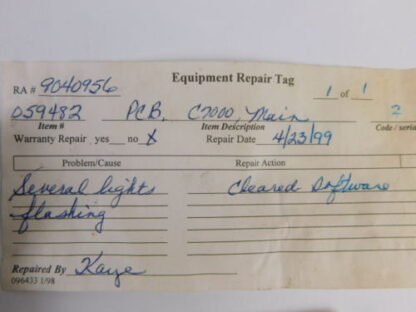 Equipment Repair Tag
RA # 9040956 1 of 1
059482 PCB, C7000, Main 2
Item # Item Description Code / seria
Warranty Repair yes no X Repair Date 4/23/99
Problem/Cause Repair Action
Several lights Cleared Software
flashing
Repaired By Kaye
096433 1/98